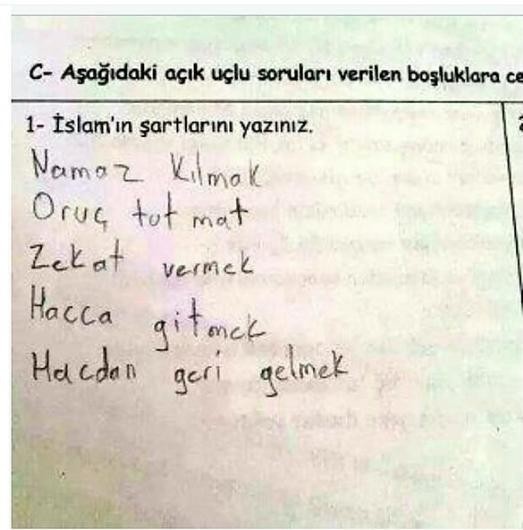 C- Aşağıdaki açık uçlu soruları verilen boşluklara ce
1- İslam'ın şartlarını yazınız.
Namaz Kılmak
Oruç tot mat
Zekat vermek
Hacca gitmek
Hacdan geri gelmek